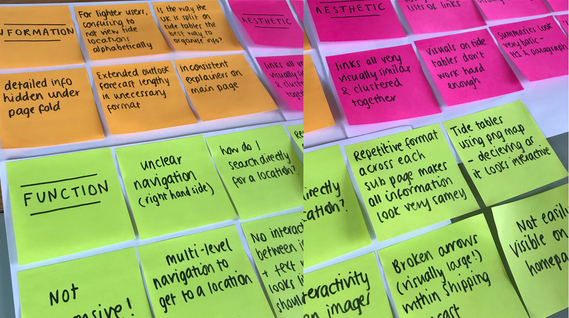 INFORMATION
For lighter users,
confusing to
not view tide
locations
alphabetically
Is the way the
UK is split on
tide tables the
best way to
organise
AESTHETIC
detailed info
hidden under
page fold
Extended outlook
forecast lengthy
in unnecessary
format
inconsistent
explainers on
main page
links all very
visually
& clustered
FUNCTION
unclear
navigation
(right hand side)
how do I
search directly
for a location?
Not
multi-level
navigation to
get to a location
No
between
text
looks
AESTHETIC
of links
links all very
visually similar
& clustered
together
Visuals on tide
tables don't
work hard
enough
Summaries look
very basic -
& paragraphs
Repetitive format
across each
sub page makes
all information
look very samey
Tide tables
using png map
- decieving as
it looks interactive
Broken arrows
(visually large!)
within shipping
Not easily
visible on